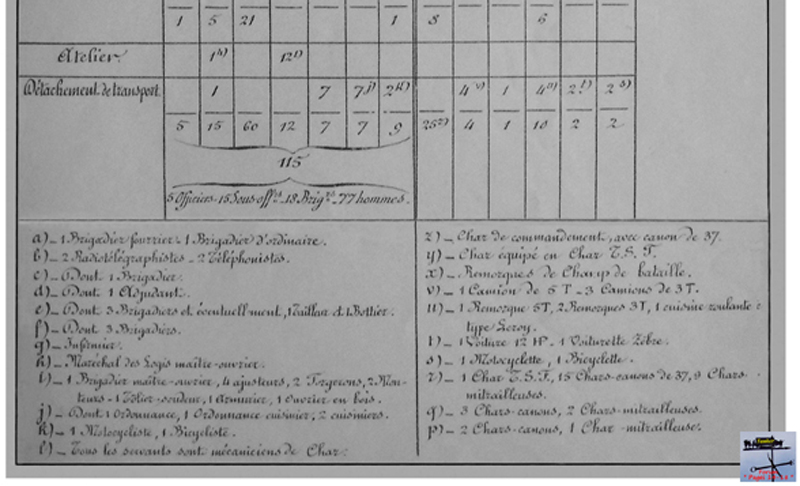 1 5 21 1 8 6
Atelier. 1h) 12i)
Détachement de transport. 1 7 7j) 2k) 4v) 1 4u) 2t) 2s)
5 15 60 12 7 7 9 25z) 4 1 10 2 2
115
5 Officiers-15 Sous-offrs-18 Brigrs-77 hommes.
a)- 1 Brigadier fourrier- 1 Brigadier d'ordinaire.
b)- 2 Radiotélégraphistes - 2 Téléphonistes.
c)- Dont 1 Brigadier.
d)- Dont 1 Adjudant.
e)- Dont 3 Brigadiers et éventuellement, 1 Tailleur et 1 Bottier.
f)- Dont 3 Brigadiers.
g)- Infirmier.
h)- Maréchal des Logis maître-ouvrier.
i)- 1 Brigadier maître-ouvrier, 4 ajusteurs, 2 Forgerons, 2 Mon-
teurs - 1 Tôlier-soudeur, 1 Armurier, 1 Ouvrier en bois.
j)- Dont 1 Ordonnance, 1 Ordonnance cuisinier, 2 cuisiniers.
k)- 1 Motocycliste, 1 Bicycliste.
l)- Tous les servants sont mécaniciens de Char.
z)- Char de commandement, avec canon de 37.
y)- Char équipé en Char T.S.F.
x)- Remorques de Champ de bataille.
v)- 1 Camion de 5 T - 3 Camions de 3 T.
u)- 1 Remorque 5T, 2 Remorques 3T, 1 cuisine roulante
type Leroy.
t)- 1 Voiture 12 HP - 1 Voiturette Zèbre.
s)- 1 Motocyclette, 1 Bicyclette.
r)- 1 Char T.S.F., 15 Chars-canons de 37, 9 Chars-
mitrailleuses.
q)- 3 Chars-canons, 2 Chars-mitrailleuses.
p)- 2 Chars-canons, 1 Char-mitrailleuse.
Forum